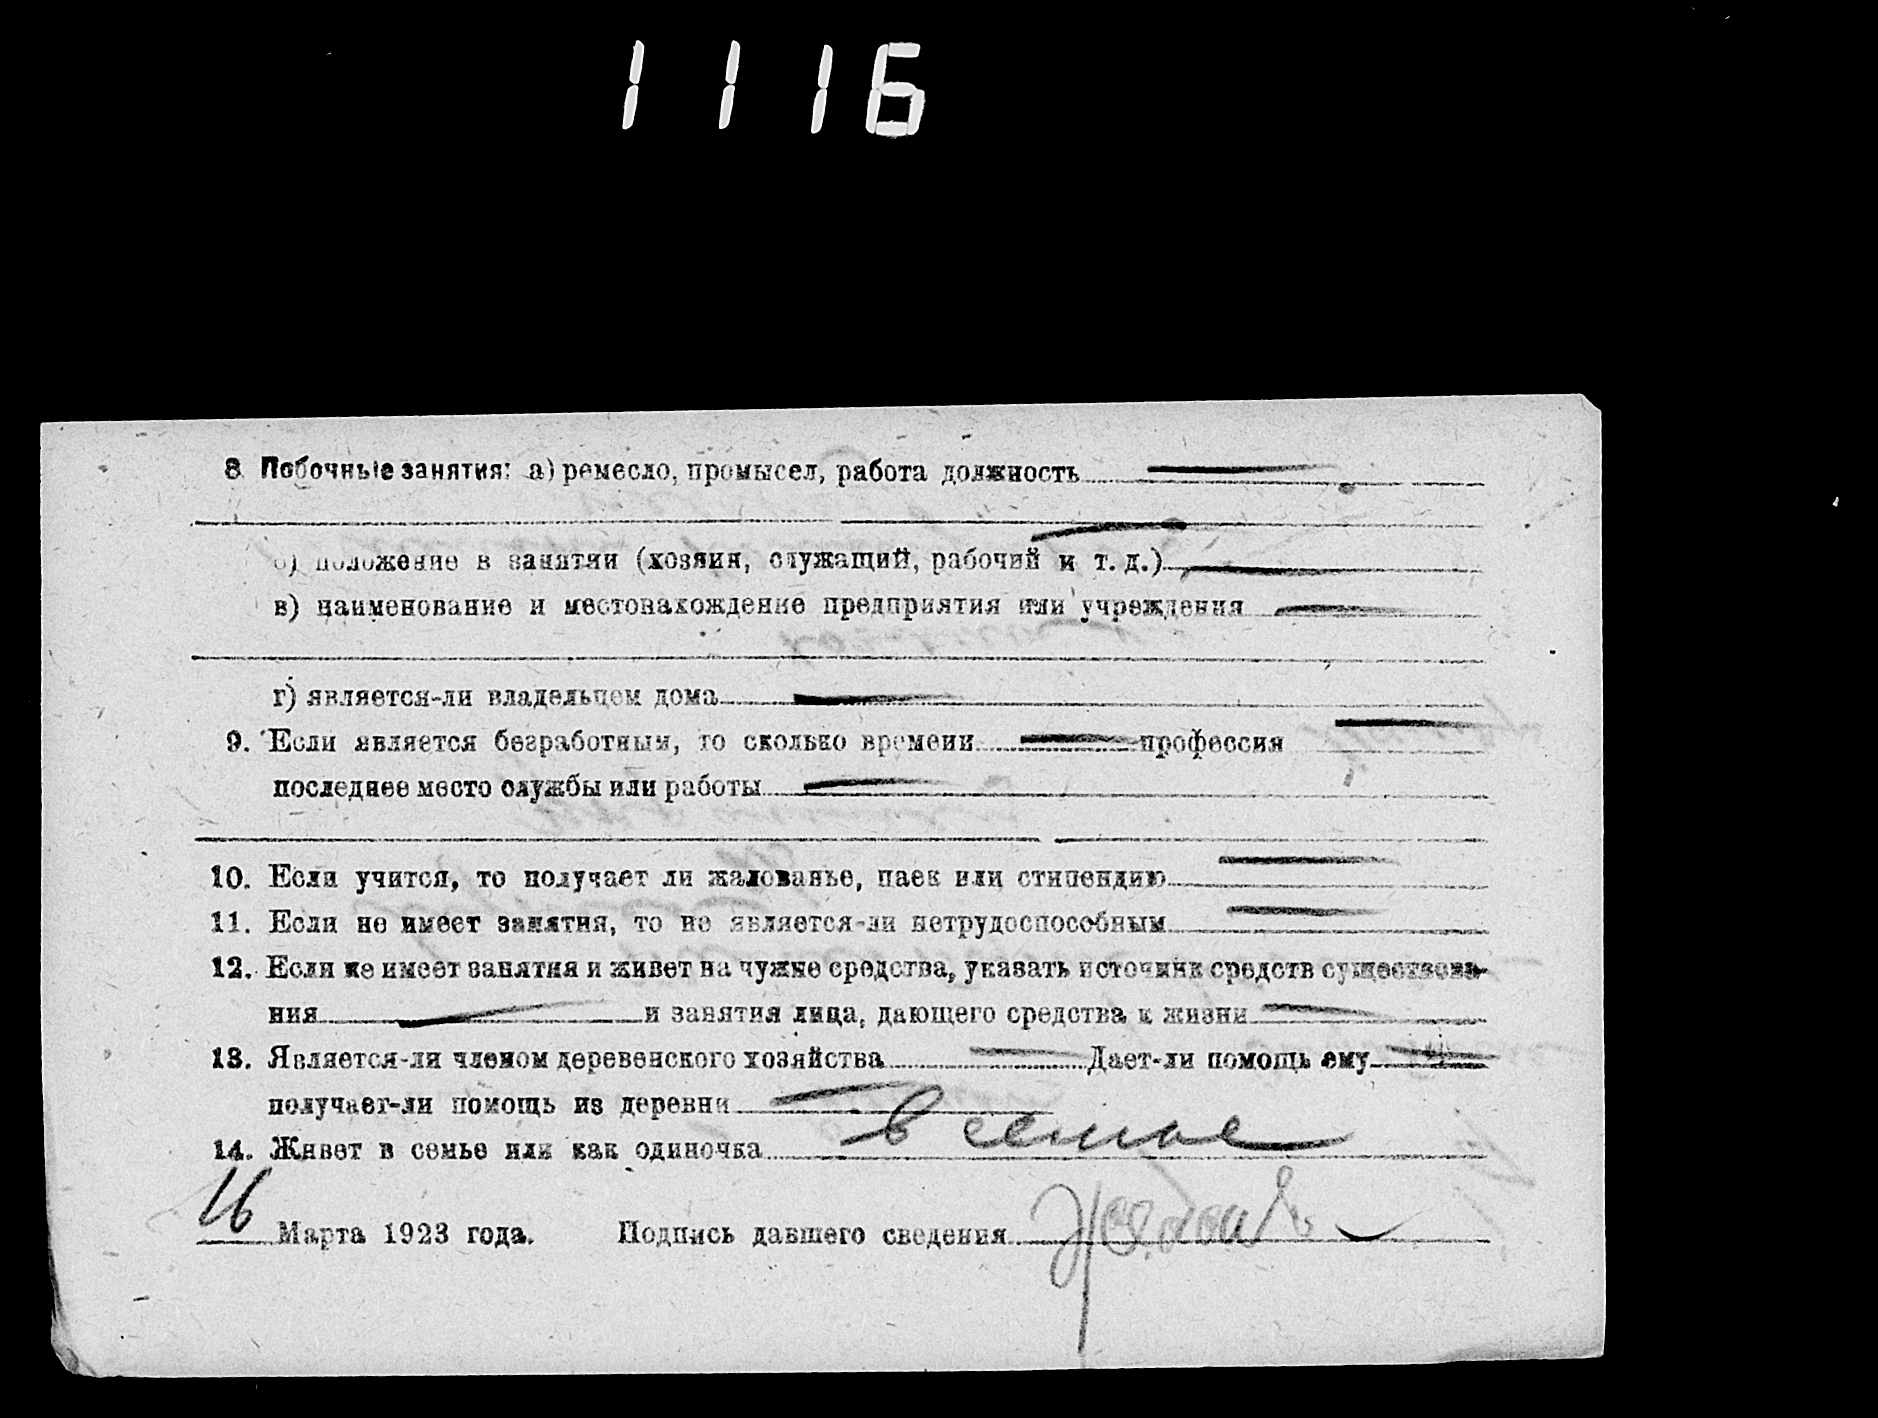 1116
8 Побочные занятия: а) ремесло, промысел, работа должность
б) положение в занятии (хозяин, служащий, рабочий и т. д.)
в) наименование и местонахождение предприятия или учреждения
г) является-ли владельцем дома
9. Если является безработным, то сколько времени профессия
последнее место службы или работы
10. Если учится, то получает ли жалованье, паек или стипендию
11. Если не имеет занятия, то не является-ли нетрудоспособным
12. Если не имеет занятия и живет на чужие средства, указать источник средств существова-
ния и занятия лица, дающего средства к жизни
13. Является-ли членом деревенского хозяйства Дает-ли помощь ему
получает-ли помощь из деревни
14. Живет в семье или как одиночка в семье
16 Марта 1923 года. Подпись давшего сведения